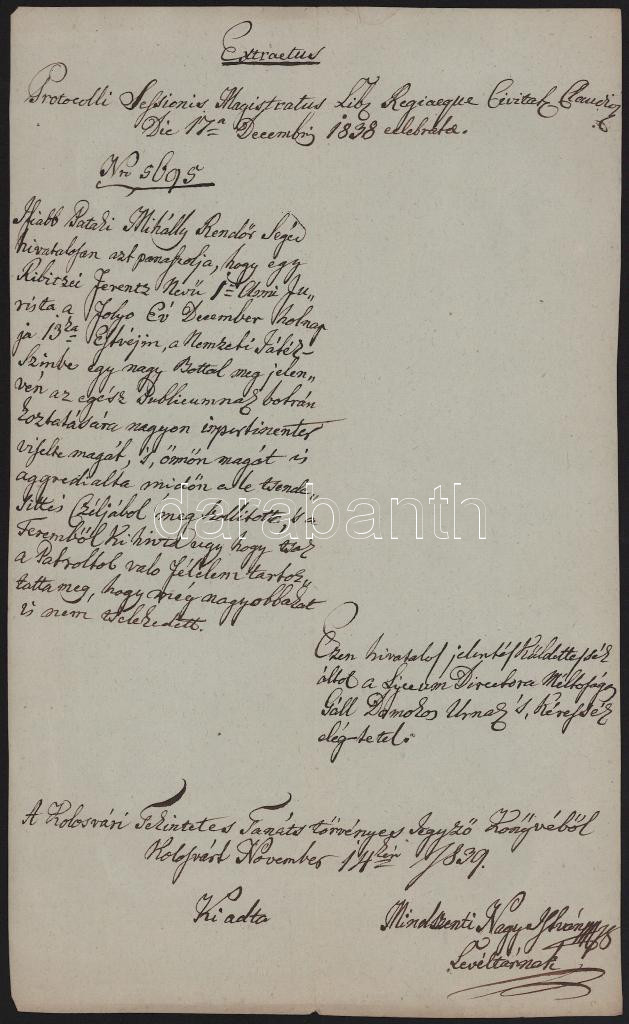 Extractus
Protocolli Sessionis Magistratus Lib. Regiaeque Civitat. Claudiop.
Die 17ª Decembr. 1838 celebratae.
Nro 5695
Ifiabb Pataki Mihálly Rendőr Segéd
hivatalosan azt panaszolja, hogy egy
Ribiczei Ferentz Nevű 1ső Anni Ju„
rista a folyo Év December holnap
ja 13ka Estvéjin, a Nemzeti Játék-
Szinbe egy nagy Bottal meg jelen„
vén az egész Publicumnak botrán
koztatására nagyon inpertinenter
viselte magát, 's, ömön magát is
aggredialta midőn a le tsende„
sittés Czéljából meg szollitott, 's a
Teremből Ki hivta ugy hogy tsak
a Patroltol valo félelem tartoz„
tatta meg, hogy még nagyobbakat
is nem tselekedett.
Ezen hivatalos jelentés Küldettessék
által a Lyceum Directora Méltoságos
Gáll Domokos Urnak 's, Kéressék
elég-tétel.
A Kolosvári Tekintetes Tanáts törvényes Jegyző Könyvéből
Kolosvárt November 14kén 1839.
Ki adta
Mindszenti Nagy István
Levéltárnok
darabanth